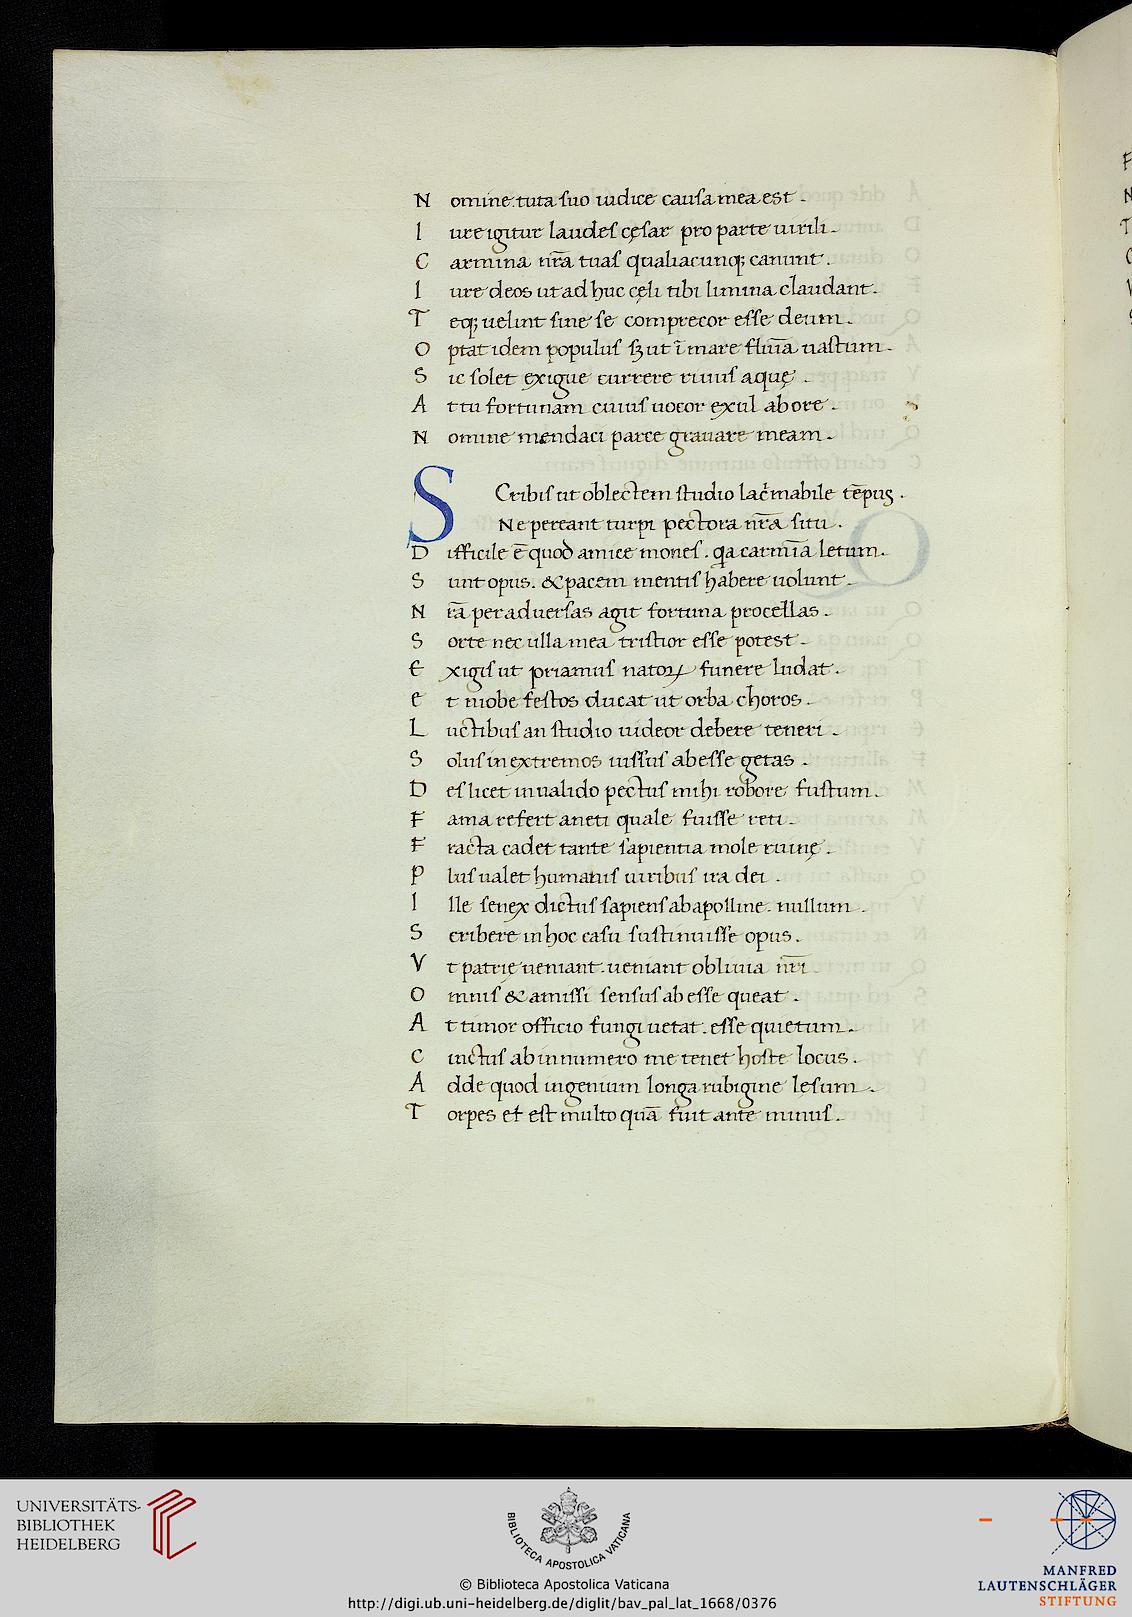 N omine tuta suo iudice causa mea est .
I ure igitur laudes cęsar pro parte uirili .
C armina nr̄a tuas qualiacunq; canunt .
I ure deos ut ad huc cęli tibi limina claudant .
T eq; uelint sine se comprecor esse deum .
O ptat idem populus sꝫ ut ī mare flūīa uastum .
S ic solet exigue currere riuus aquę .
A t tu fortunam cuius uocor exul ab ore .
N omine mendaci parce grauare meam .
S Cribis ut oblectem studio lac̄mabile tēpus .
Ne pereant turpi pectora nr̄a situ .
D ifficile ē quod amice mones . qa carmīa letum .
S unt opus . & pacem mentis habere uolunt .
N r̄a per aduersas agit fortuna procellas .
S orte nec ulla mea tristior esse potest .
E xigis ut priamus natoꝝ funere ludat .
E t niobe festos ducat ut orba choros .
L uctibus an studio uideor debere teneri .
S olus in extremos iussus abesse getas .
D es licet in ualido pectus mihi robore fustum .
F ama refert aneti quale fuisse reti .
F racta cadet tante sapientia mole ruinę .
P lus ualet humanis uiribus ira dei .
I lle senex dictus sapiens ab apolline . nullum .
S cribere in hoc casu sustinuisse opus .
V t patrię ueniant . ueniant obliuia nr̄i
O mnis & amissi sensus ab esse queat .
A t timor officio fungi uetat . esse quietum .
C inctus ab innumero me tenet hoste locus .
A dde quod ingenium longa rubigine lęsum .
T orpet et est multo quā fuit ante minus .
UNIVERSITÄTS-
BIBLIOTHEK
HEIDELBERG
BIBLIOTECA APOSTOLICA VATICANA
© Biblioteca Apostolica Vaticana
http://digi.ub.uni-heidelberg.de/diglit/bav_pal_lat_1668/0376
MANFRED
LAUTENSCHLÄGER
STIFTUNG